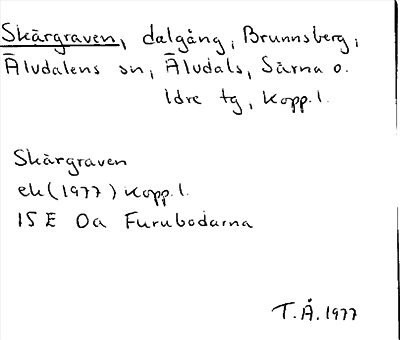 Skärgraven, dalgång, Brunnsberg,
Älvdalens sn, Älvdals, Särna o.
Idre tg, Kopp. l.
Skärgraven
ek (1977) Kopp. l.
15 E 0a Furubodarna
T.Å. 1977